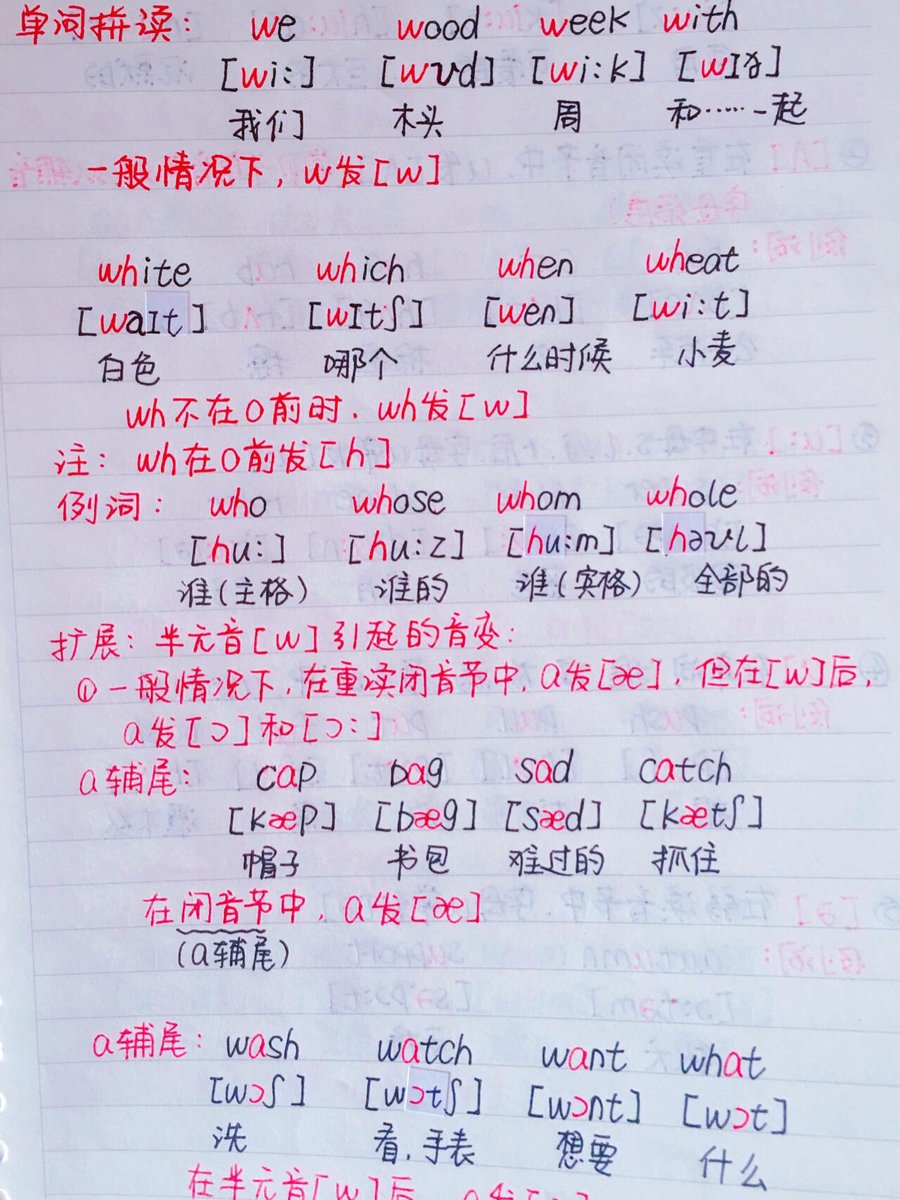 单词拼读: we wood week with
[wi:] [wʊd] [wi:k] [wɪð]
我们 木头 周 和……一起
一般情况下, w发[w]
white which when wheat
[waɪt] [wɪtʃ] [wen] [wi:t]
白色 哪个 什么时候 小麦
wh不在o前时, wh发[w]
注: wh在o前发[h]
例词: who whose whom whole
[hu:] [hu:z] [hu:m] [həʊl]
谁(主格) 谁的 谁(宾格) 全部的
扩展: 半元音[w]引起的音变:
①一般情况下, 在重读闭音节中, a发[æ], 但在[w]后,
a发[ɔ]和[ɔ:]
a辅尾: cap bag sad catch
[kæp] [bæg] [sæd] [kætʃ]
帽子 书包 难过的 抓住
在闭音节中, a发[æ]
(a辅尾)
a辅尾: wash watch want what
[wɔʃ] [wɔtʃ] [wɔnt] [wɔt]
洗 看,手表 想要 什么
在半元音[w]后